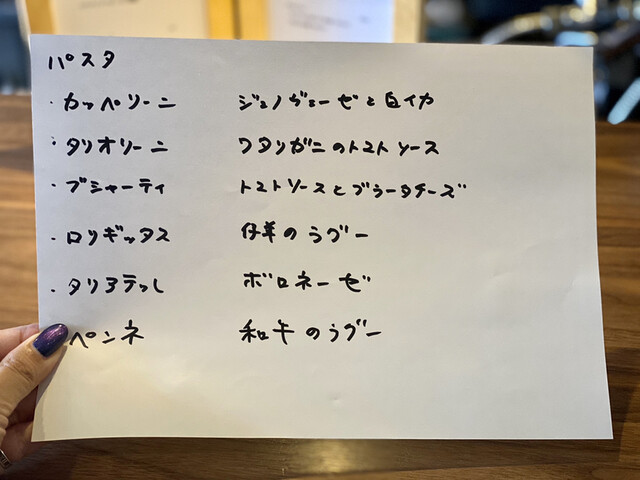 パスタ
・カッペリーニ ジェノヴェーゼと白イカ
・タリオリーニ ワタリガニのトマトソース
・ブシャーティ トマトソースとブラータチーズ
・ロリギッタス 仔羊のラグー
・タリアテッレ ボロネーゼ
ペンネ 和牛のラグー